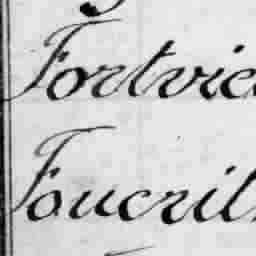 Fortvie
Foucril